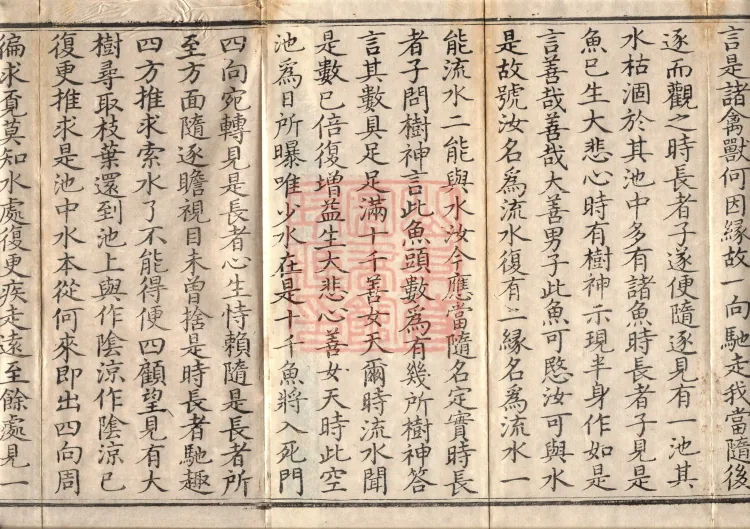 言是諸禽獸何因緣故一向馳走我當隨後
逐而觀之時長者子遂便隨逐見有一池其
水枯涸於其池中多有諸魚時長者子見是
魚已生大悲心時有樹神示現半身作如是
言善哉善哉大善男子此魚可愍汝可與水
是故號汝名為流水復有二緣名為流水一
能流水二能與水汝今應當隨名定實時長
者子問樹神言此魚頭數為有幾所樹神答
言其數具足足滿十千善女天爾時流水聞
是數已倍復增益生大悲心善女天時此空
池為日所曝唯少水在是十千魚將入死門
四向宛轉見是長者心生恃賴隨是長者所
至方面隨逐瞻視目未曾捨是時長者馳趣
四方推求索水了不能得便四顧望見有大
樹尋取枝葉還到池上與作陰涼作陰涼已
復更推求是池中水本從何來即出四向周
徧求覓莫知水處復更疾走遠至餘處見一